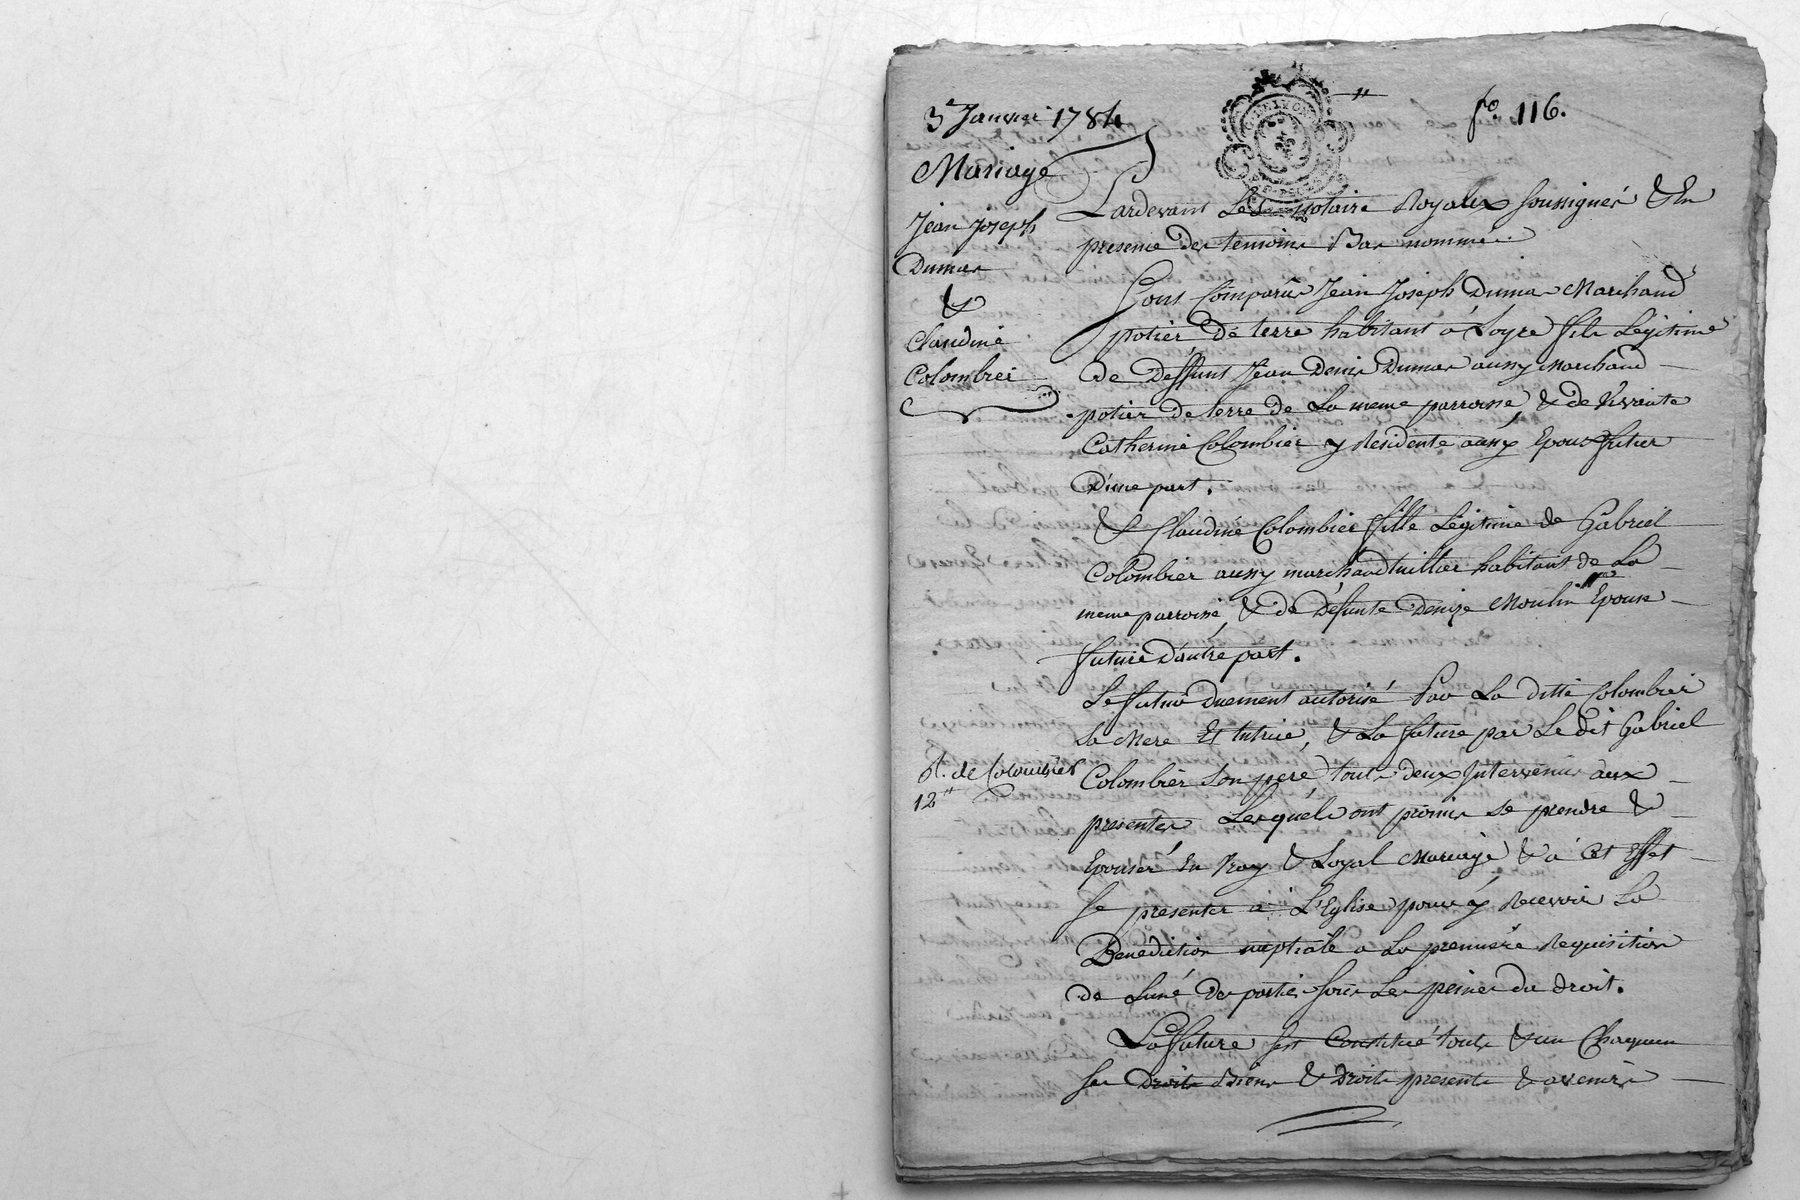 3e Janvier 1784
fo. 116.
Mariage
Jean Joseph
Dumas
&
Claudine
Colombier
Pardevant Les notaire Royaux soussignés & En
presence des temoins Bas nommes.
Sont Comparus Jean Joseph Dumas Marchand
potier de terre habitant a Loyre fils Legitime
de Deffunt Jean Denis Dumas aussy Marchand
potier de terre de La meme parroisse, & de vivante
Catherine Colombier y Residente aussy Epoux futur
D'une part.
& Claudine Colombier fille Légitime de Gabriel
Colombier aussy marchand tuillier habitant de La
meme parroisse, & de Défunte Denize Moulin Epouse
future d'autre part.
Le futur duement autorisé Par La ditte Colombier
sa Mere Et tutrice, & La future par Le dit Gabriel
Colombier son pere touts deux Intervenus aux
presentes Lesquels ont promis se prendre &
Epouser En vray & Loyal Mariage & a Cet Effet
se presenter a L'Eglise pour y Recevoir La
Benediction nuptiale a La premiere Requisition
de L'une des parties sous Les peines du droit.
R. de Colombier
12
La future s'est Constitué touts & un Chaquun
ses Droits Biens & Droits presents & avenirs